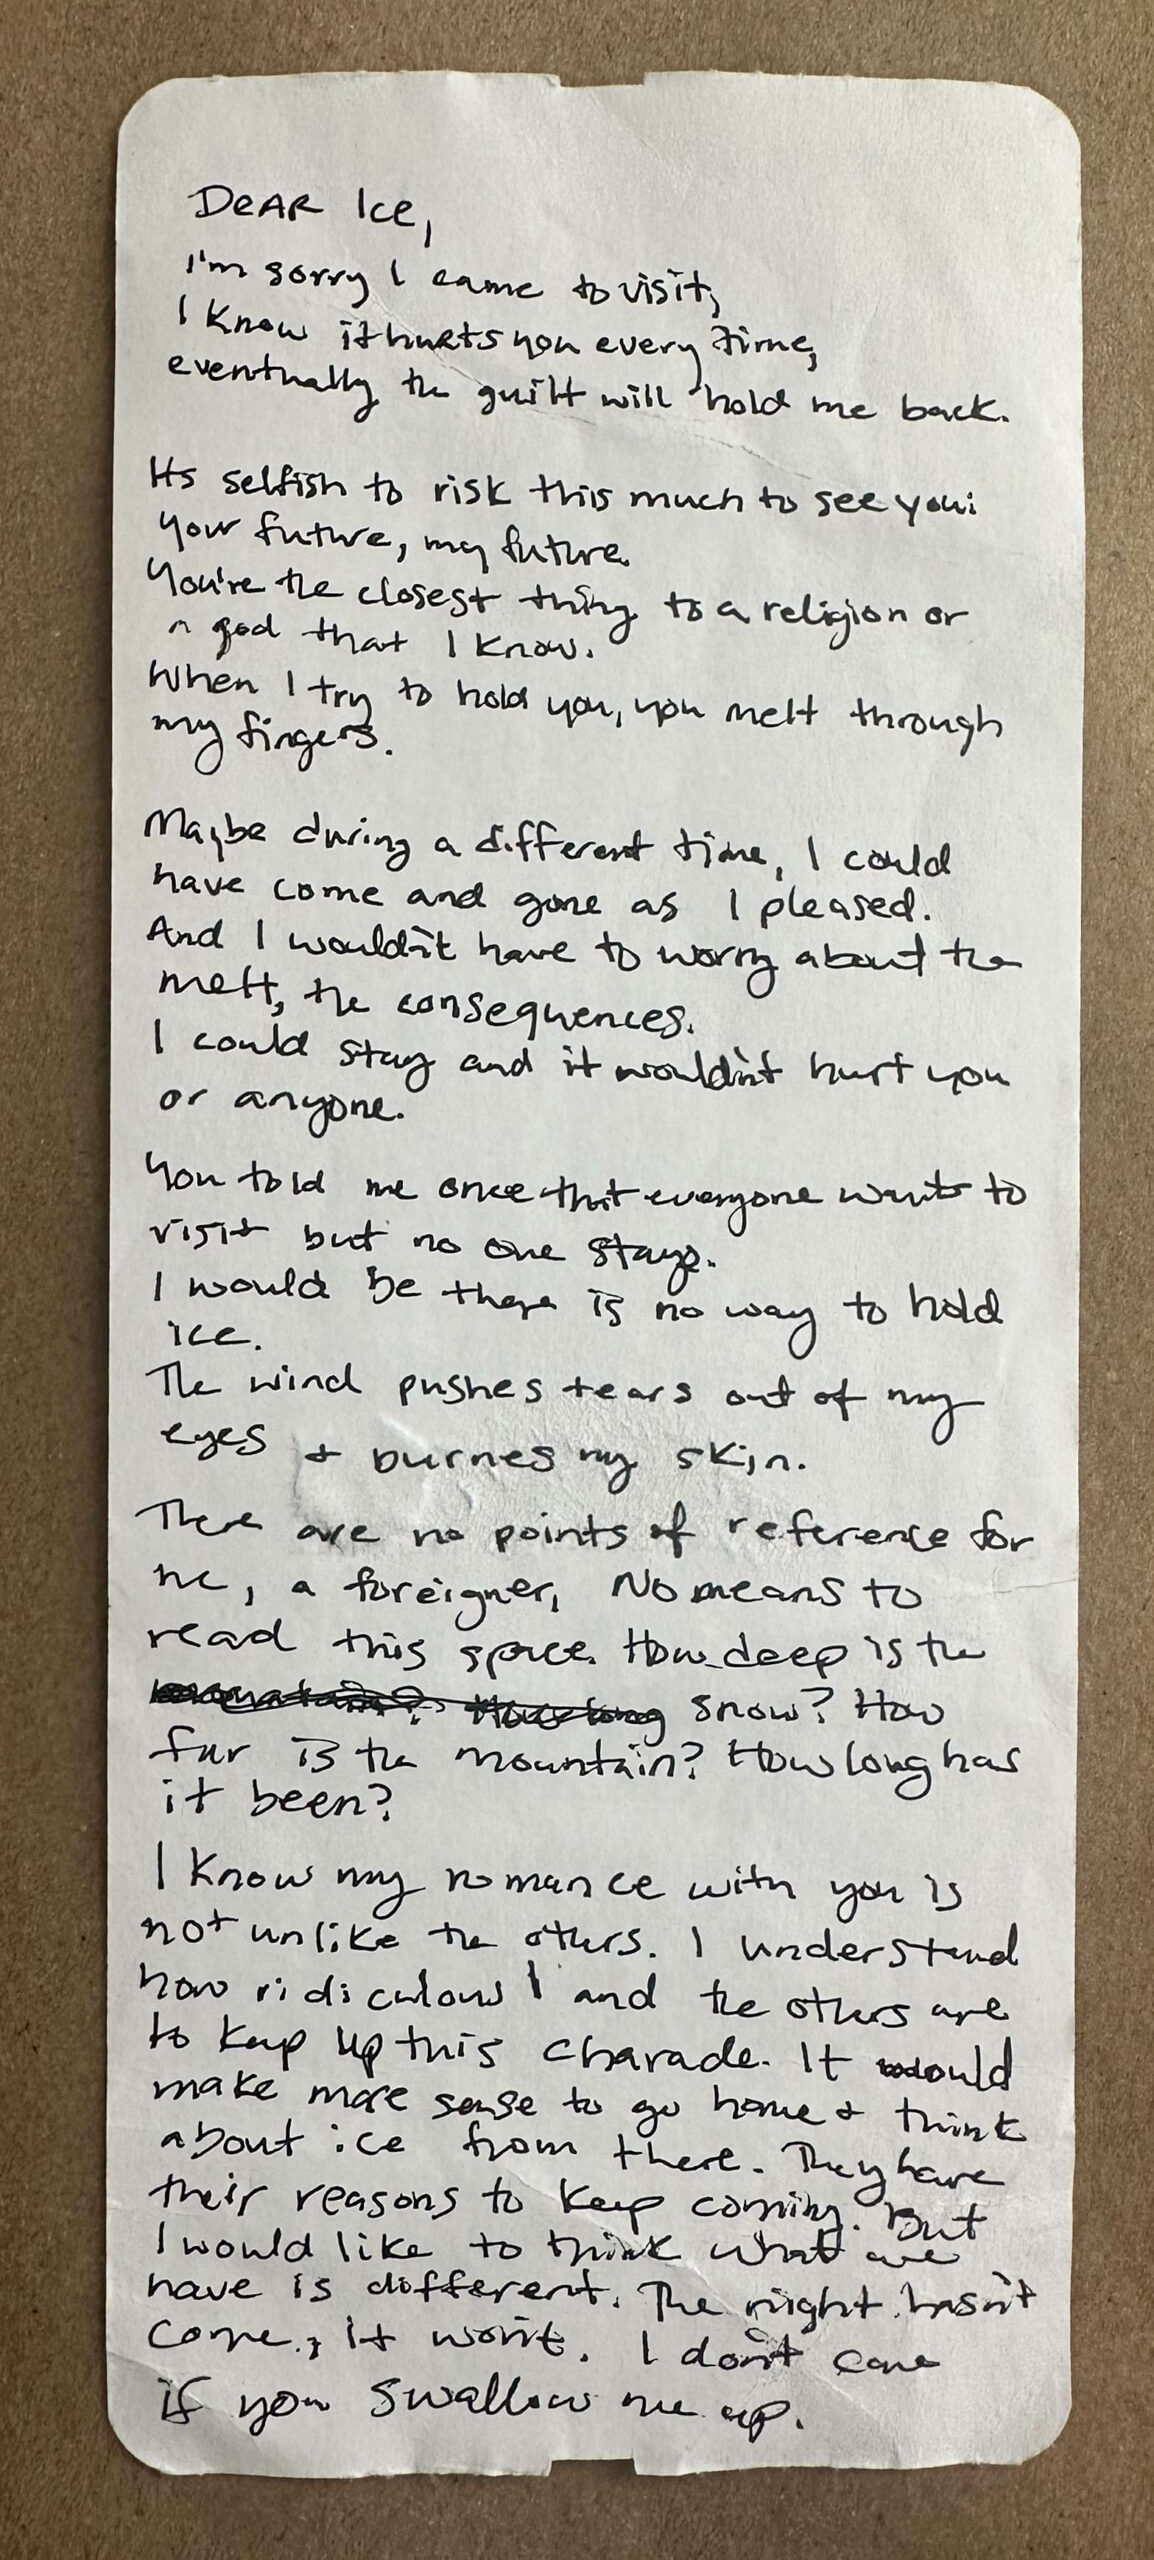 DEAR Ice,
I'm sorry I came to visit,
I know it hurts you every time,
eventually the guilt will hold me back.
Its selfish to risk this much to see you:
your future, my future.
You're the closest thing to a religion or
a god that I know.
When I try to hold you, you melt through
my fingers.
Maybe during a different time, I could
have come and gone as I pleased.
And I wouldn't have to worry about the
melt, the consequences.
I could stay and it wouldn't hurt you
or anyone.
You told me once that everyone wants to
visit but no one stays.
I would be there is no way to hold
ice.
The wind pushes tears out of my
eyes + burnes my skin.
There are no points of reference for
me, a foreigner, No means to
read this space. How deep is the
snow? How
far is the mountain? How long has
it been?
I know my romance with you is
not unlike the others. I understand
how ridiculous I and the others are
to keep up this charade. It would
make more sense to go home + think
about ice from there. They have
their reasons to keep coming. But
I would like to think what we
have is different. The night hasn't
come, it won't. I don't care
if you swallow me up.